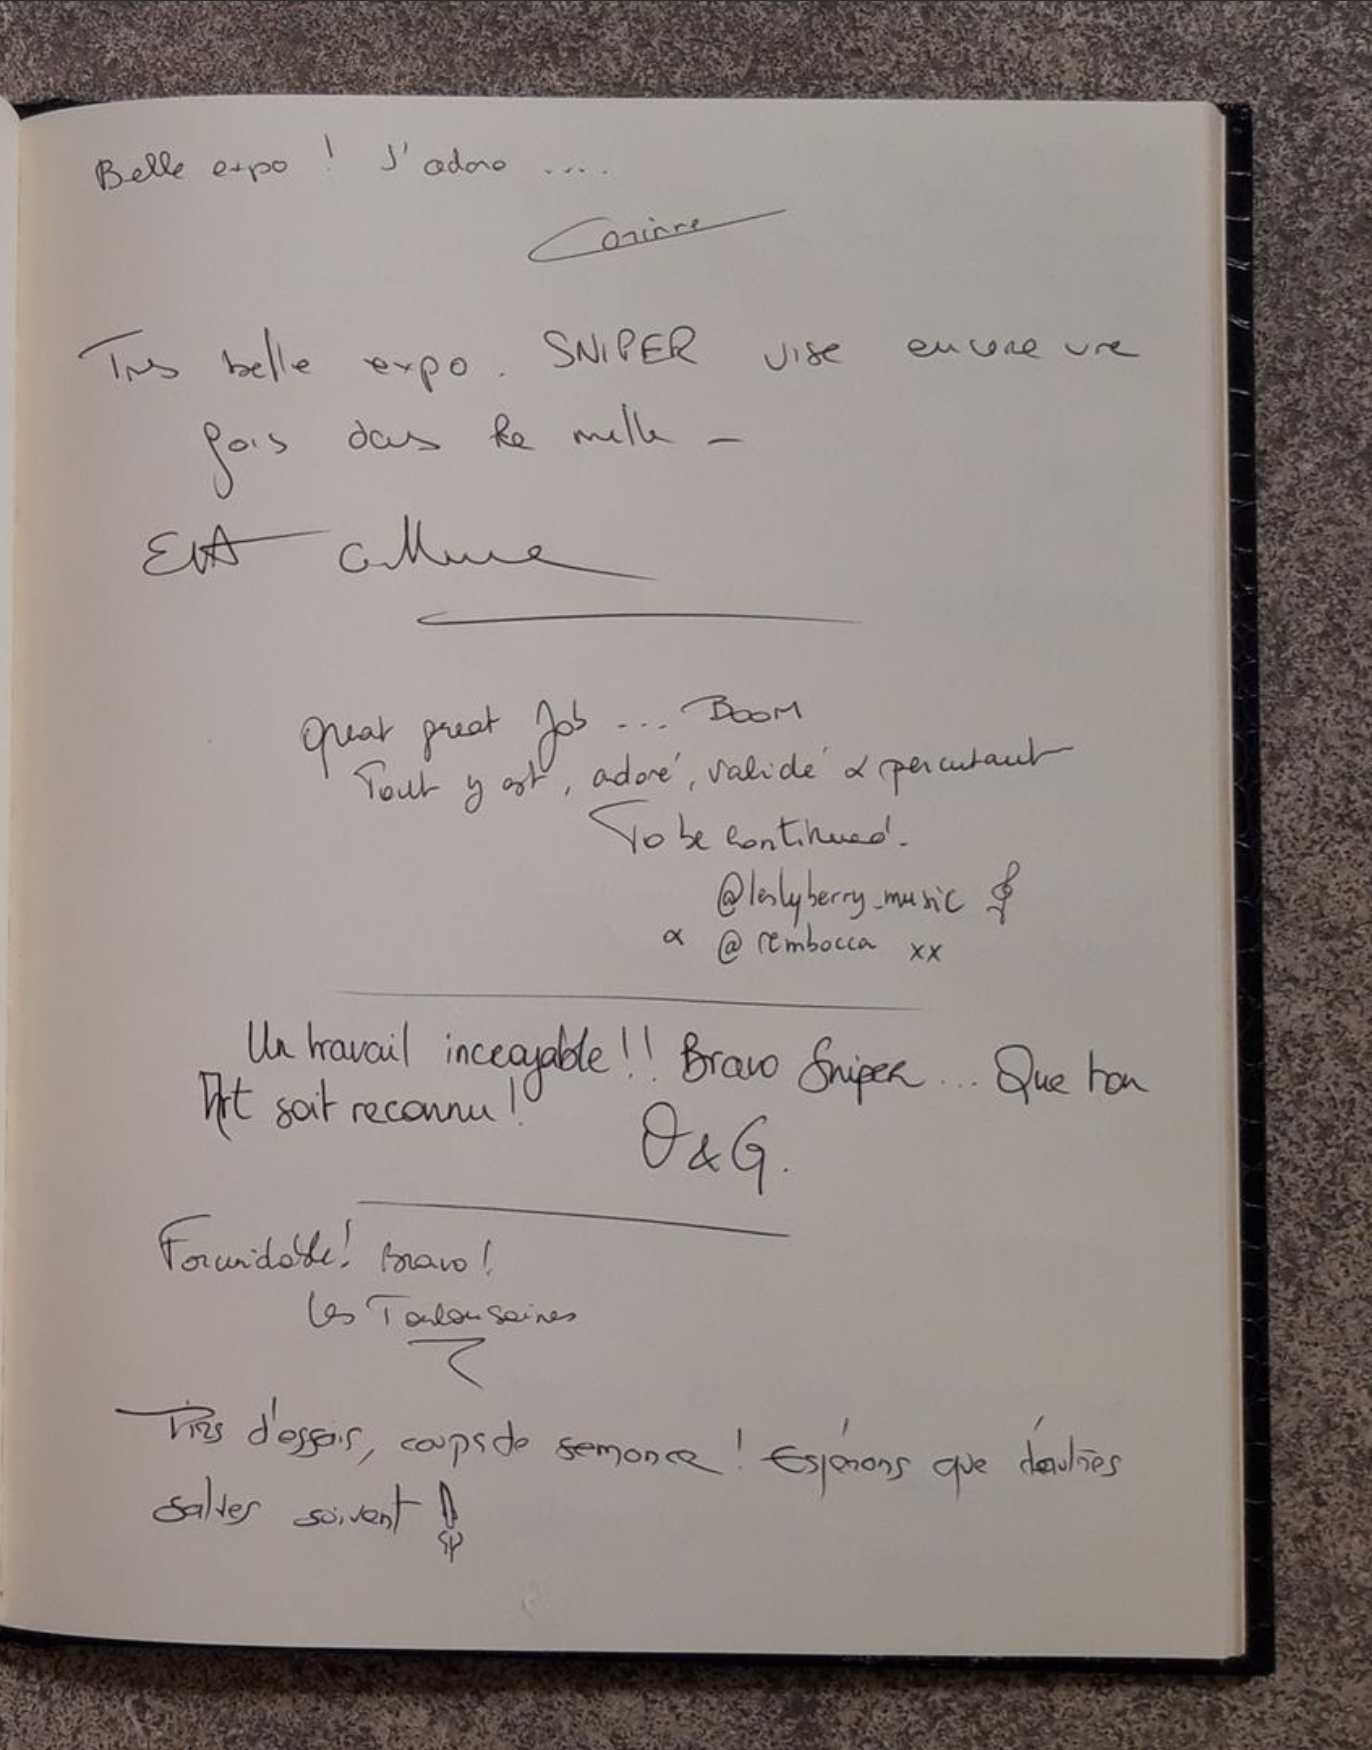 Belle expo ! J'adore ....
Corinne
Très belle expo. SNIPER vise encore une
fois dans le mille –
EVA
Great great Job ... BOOM
Tout y est, adoré, validé & percutant
To be continued.
@leslyberry_music
& @rembocca xx
Un travail incroyable !! Bravo Sniper ... Que ton
Art soit reconnu !
O & G.
Formidable ! Bravo !
Les Toulousaines
Tirs d'essais, coups de semonce ! Espérons que d'autres
salves suivent !